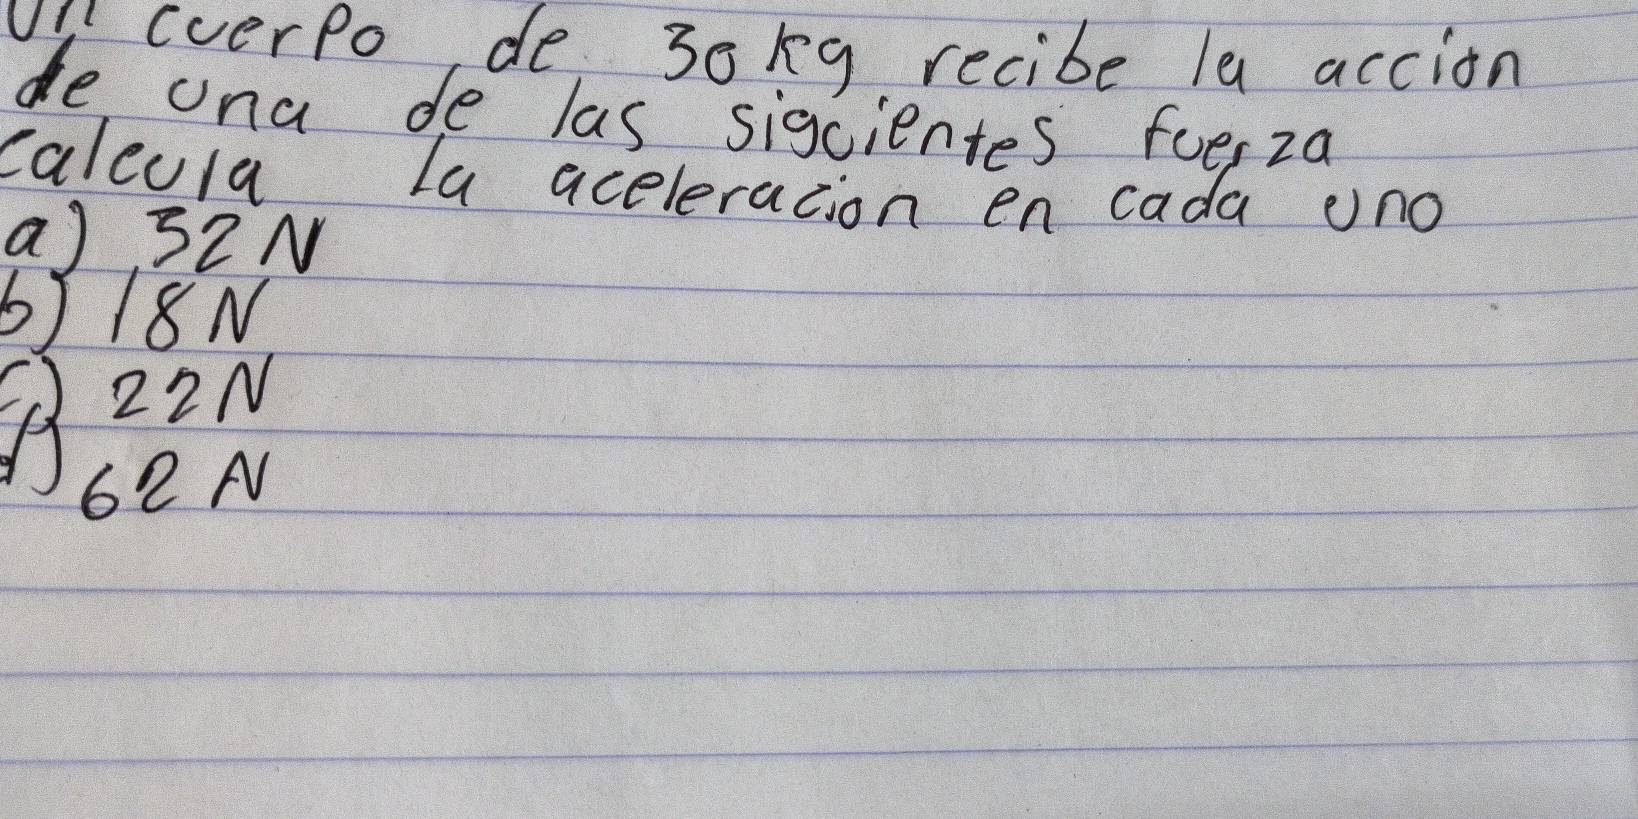 Un cuerpo de 30 kg recibe la accion
de una de las siguientes fuerza
calcula La aceleracion en cada uno
a) 32 N
b) 18 N
c) 22 N
d) 62 N